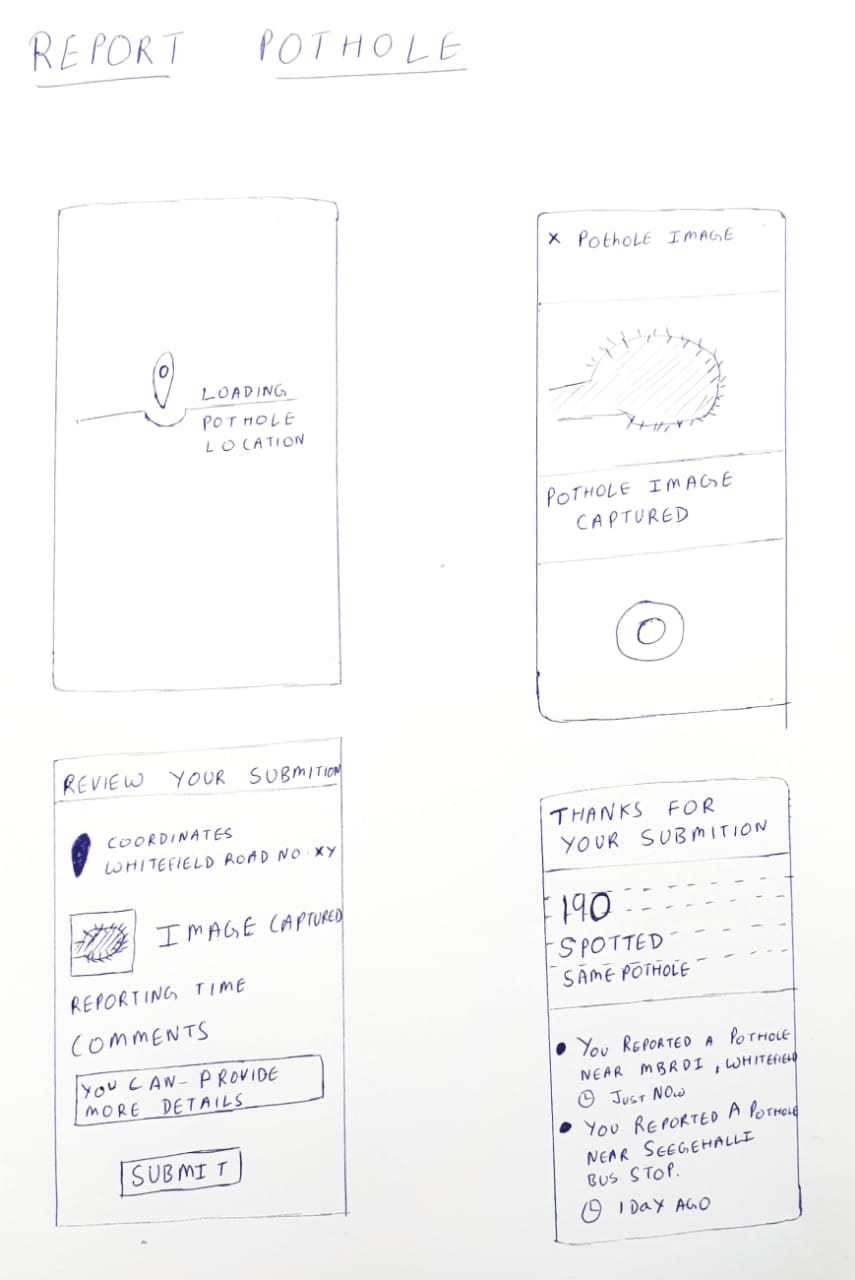 REPORT POTHOLE
LOADING
POTHOLE
LOCATION
X POTHOLE IMAGE
POTHOLE IMAGE
CAPTURED
REVIEW YOUR SUBMITION
COORDINATES
WHITEFIELD ROAD NO. XY
IMAGE CAPTURED
REPORTING TIME
COMMENTS
YOU CAN PROVIDE
MORE DETAILS
SUBMIT
THANKS FOR
YOUR SUBMITION
190
SPOTTED
SAME POTHOLE
YOU REPORTED A POTHOLE
NEAR MBRDI, WHITEFIELD
JUST NOW
YOU REPORTED A POTHOLE
NEAR SEEGEHALLI
BUS STOP.
1 DAY AGO